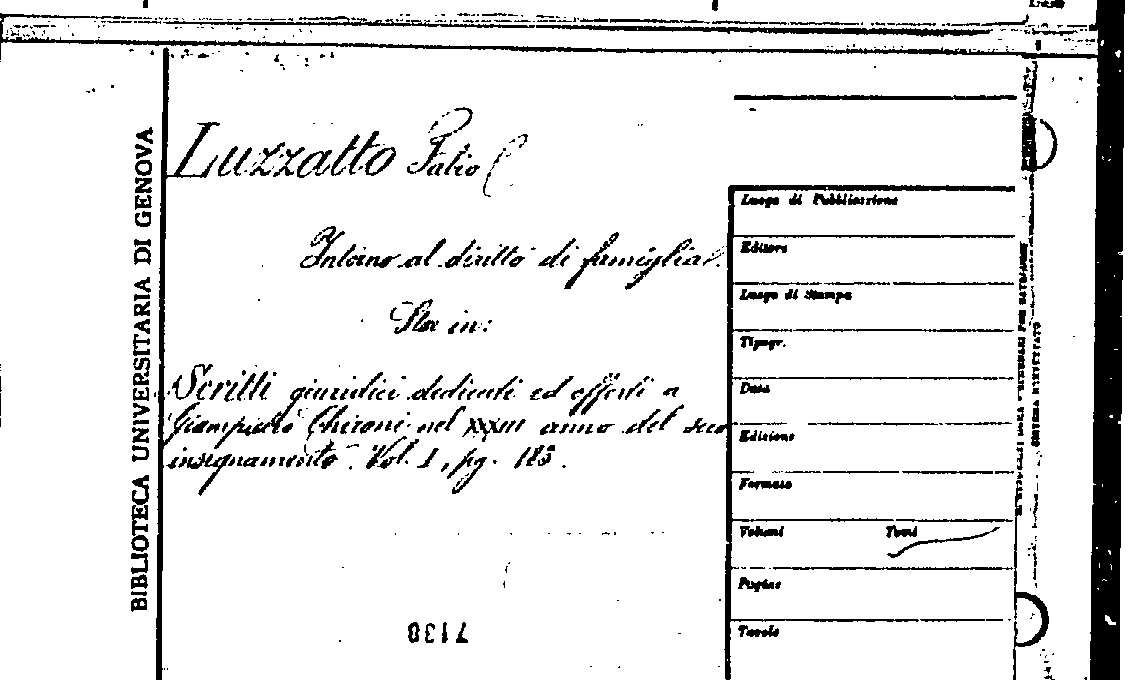 BIBLIOTECA UNIVERSITARIA DI GENOVA
Luzzatto Fabio
Intorno al diritto di famiglia.
Sta in:
Scritti giuridici dedicati ed offerti a
Giampietro Chironi nel XXXIII anno del suo
insegnamento. Vol. I, pg. 185.
7130
Luogo di Pubblicazione
Editore
Luogo di Stampa
Tipogr.
Data
Edizione
Formato
Volumi Tomi
Pagine
Tavole